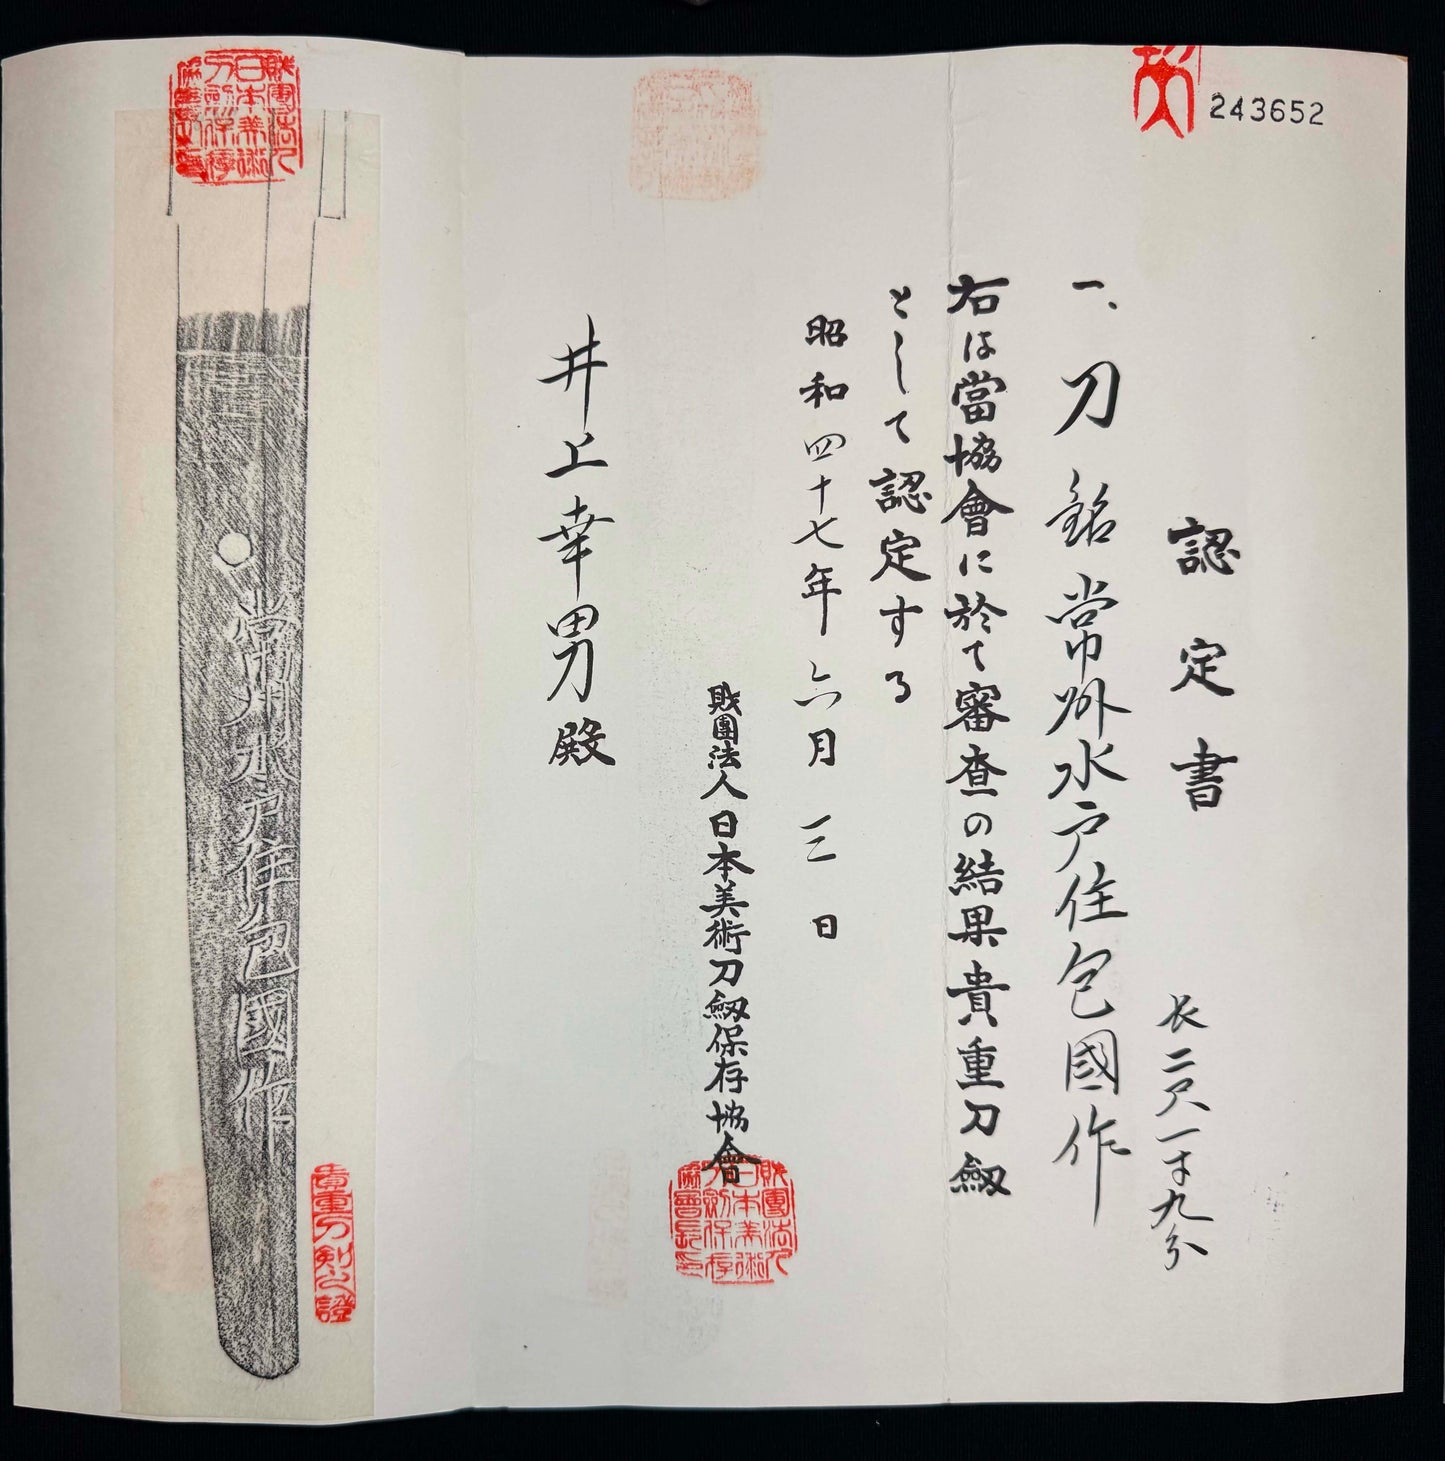 243652
認定書
一、刀 銘 常州水戸住包國作
長二尺一寸九分
右は當協會に於て審査の結果貴重刀劔
として認定する
昭和四十七年六月三日
財團法人日本美術刀劔保存協會
財團法人日本美術刀劍保存協會長印
井上幸男殿
財團法人日本美術刀劍保存協會長印
常州水戸住包國作
貴重刀剣之證